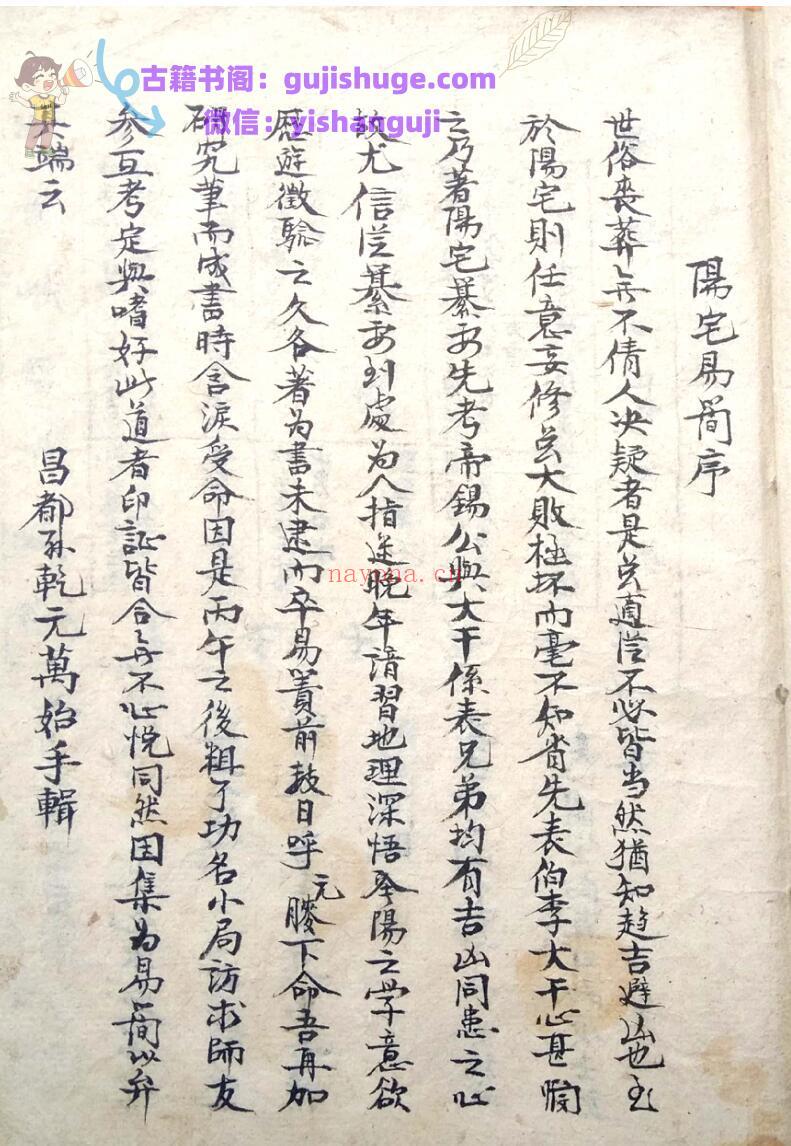 古籍书阁：gujishuge.com
微信：yishanguji
nayona.cn
陽宅易簡序
世俗喪葬無不倩人决疑者是以適從不必皆当然猶知趋吉避凶也至
於陽宅則任意妄修以大敗極坏而毫不知省先表伯李大干心甚憫
之乃著陽宅纂要先考帝錫公與大干係表兄弟均有吉凶同患之心
故尤信從纂要到處为人指迷晚年諳習地理深悟陰陽之学意欲
歷遊徵驗之久各著为書未逮而卒易簀前数日呼元膝下命吾再加
研究筆而成書時含淚受命因是丙午之後粗了功名小局訪求師友
参互考定與嗜好此道者印証皆合無不心悦同然因集为易簡以弁
其端云
昌都孫乾元萬始手輯